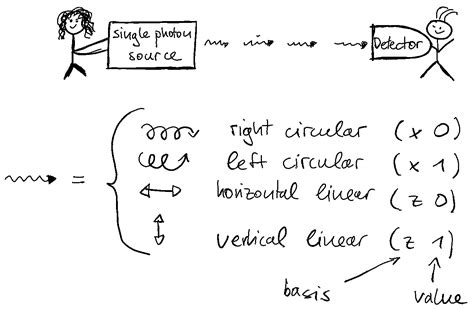 single photon source
Detector
=
right circular (x 0)
left circular (x 1)
horizontal linear (z 0)
vertical linear (z 1)
basis
value